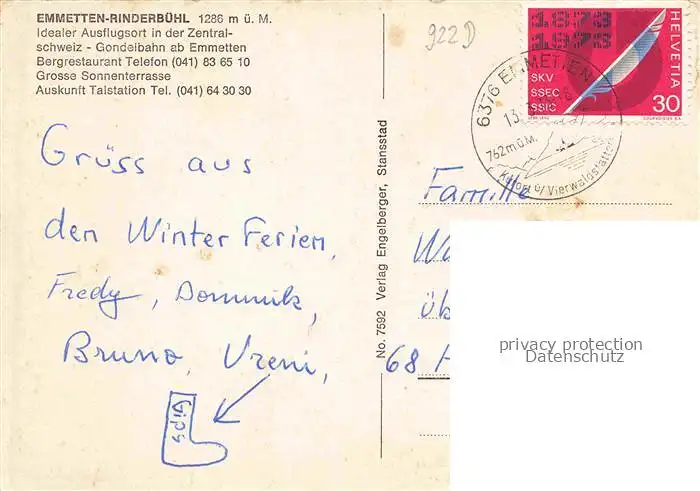 EMMETTEN-RINDERBÜHL 1286 m ü. M.
Idealer Ausflugsort in der Zentral-
schweiz - Gondelbahn ab Emmetten
Bergrestaurant Telefon (041) 83 65 10
Grosse Sonnenterrasse
Auskunft Talstation Tel. (041) 64 30 30
922 D
1873
1973
SKV
SSEC
SSIC
HELVETIA
30
COURVOISIER S.A.
6376 EMMETTEN
13.
762 m ü. M.
Kurort ü/Vierwaldstättersee
Grüss aus
den Winter Ferien,
Fredy, Dominik,
Bruno, Vreni,
Gips
No. 7592 Verlag Engelberger, Stansstad
Familie
Wa
üb
68 H
privacy protection
Datenschutz